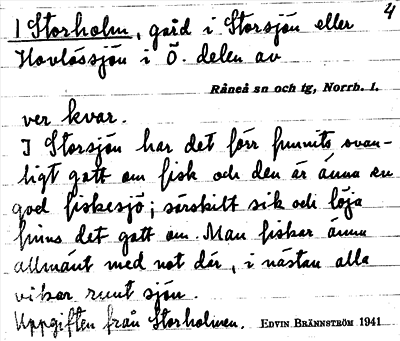 4
I Storholm, gård i Storsjön eller
Hovlössjön i Ö. delen av
Råneå sn och tg, Norrb. l.
ver kvar.
I Storsjön har det förr funnits ovan-
ligt gott om fisk och den är ännu en
god fiskesjö; särskilt sik och löja
finns det gott om. Man fiskar ännu
allmänt med not där, i nästan alla
vikar runt sjön.
Uppgiften från Storholmen. EDVIN BRÄNNSTRÖM 1941